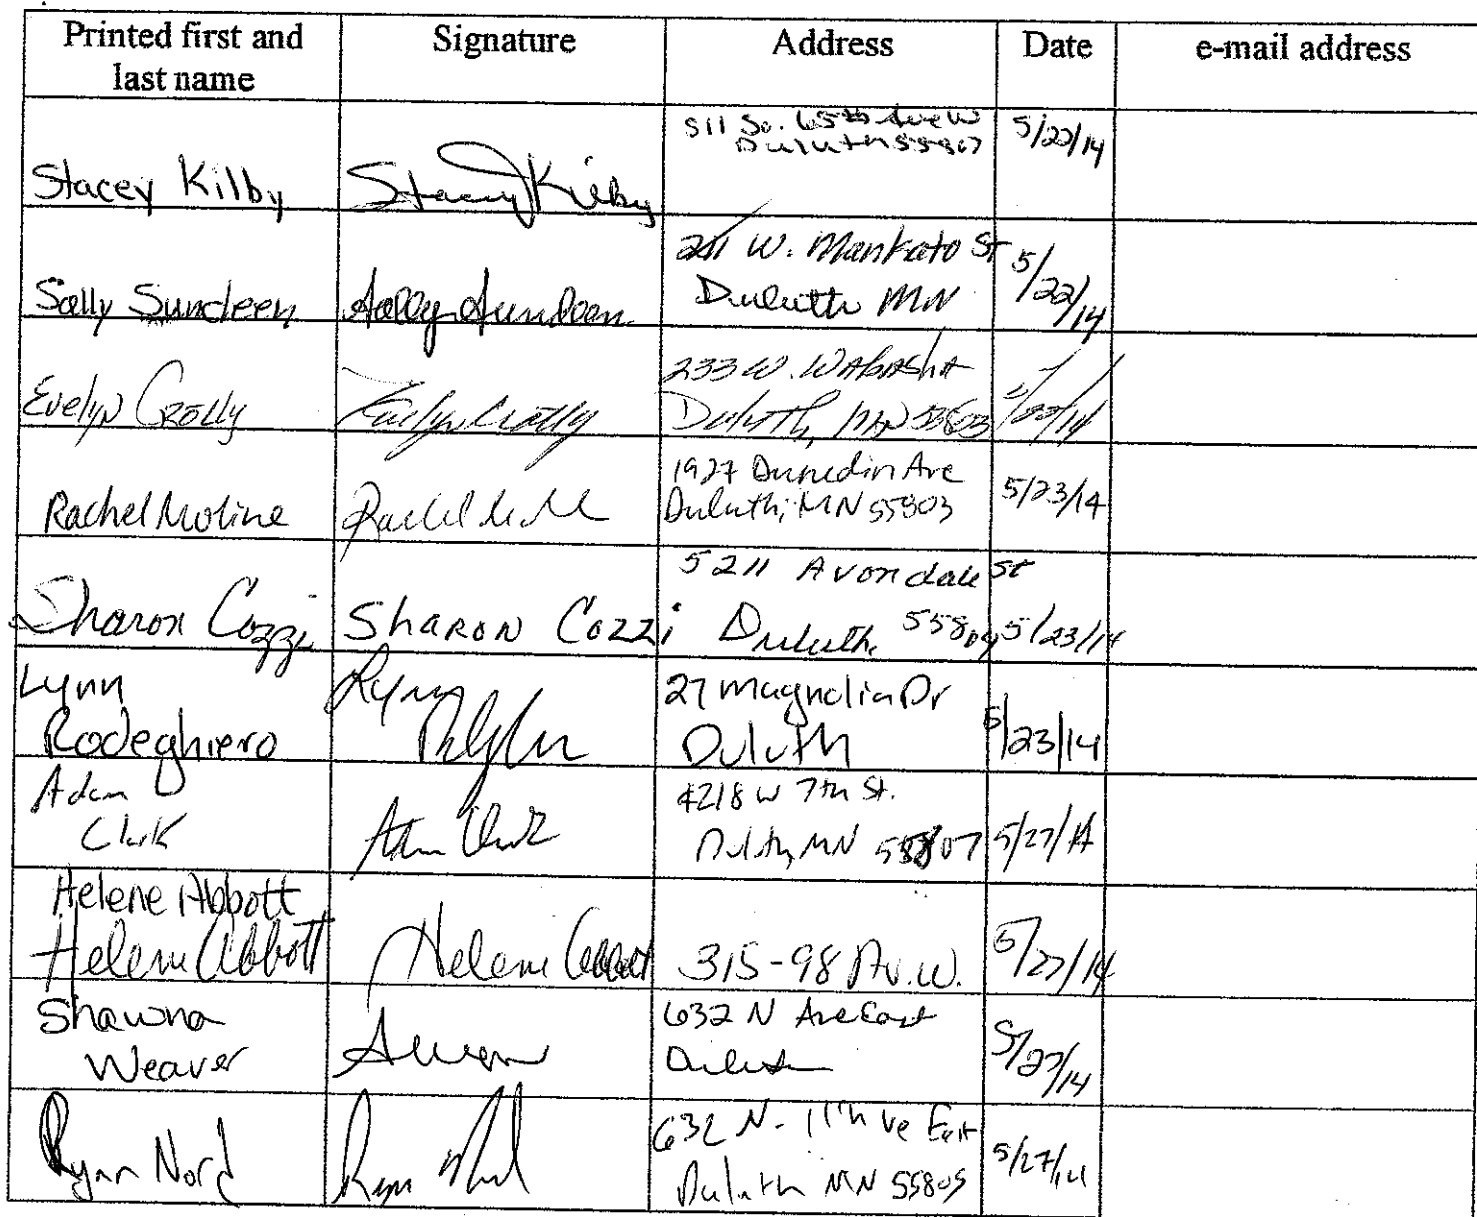 Printed first and
last name
Signature
Address
Date
e-mail address
Stacey Kilby
Stacey Kilby
511 So. 65th Ave W
Duluth 55807
5/22/14
Sally Sundeen
Sally Sundeen
211 W. Mankato St
Duluth MN
5/22/14
Evelyn Crolly
Evelyn Crolly
233 W. Wabasha
Duluth, MN 55803
5/22/14
Rachel Moline
Rachel
1927 Dunedin Ave
Duluth, MN 55803
5/23/14
Sharon Cozzi
Sharon Cozzi
5211 Avondale St
Duluth 55804
5/23/14
Lynn
Rodeghiero
Lynn
27 Magnolia Dr
Duluth
5/23/14
Adam
Clark
Adam Clark
4218 W 7th St.
Duluth, MN 55807
5/27/14
Helene Abbott
Helene Abbott
Helene Abbott
315-98 Av. W.
5/27/14
Shawna
Weaver
632 N Ave East
Duluth
5/27/14
Rynn Nord
Rynn Nord
632 N. 11th Ave East
Duluth MN 55805
5/27/14